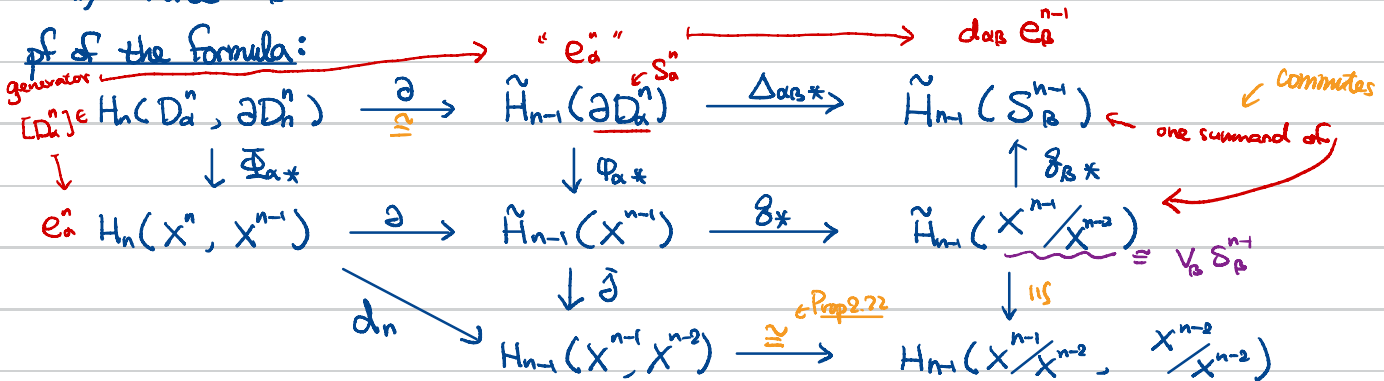 pf of the formula: "eₐⁿ" ↦ d_αβ e_β^{n-1}
generator ↙ Sₐⁿ commutes
[D_αⁿ] ∈ Hₙ(D_αⁿ, ∂Dₙⁿ) —∂→ ≅ H̃ₙ₋₁(∂D_αⁿ) —Δ_αβ*→ H̃ₙ₋₁(S_β^{n-1}) ← one summand of
↓ ↓ Φ_α* ↓ φ_α* ↑ q_β*
e_αⁿ Hₙ(Xⁿ, X^{n-1}) —∂→ H̃ₙ₋₁(X^{n-1}) —q*→ H̃ₙ₋₁(X^{n-1}/X^{n-2}) ≅ V_β S_β^{n-1}
dₙ ↓ j ← Prop 2.22 ↓ ≅
Hₙ₋₁(X^{n-1}, X^{n-2}) —≅→ Hₙ₋₁(X^{n-1}/X^{n-2}, X^{n-2}/X^{n-2})